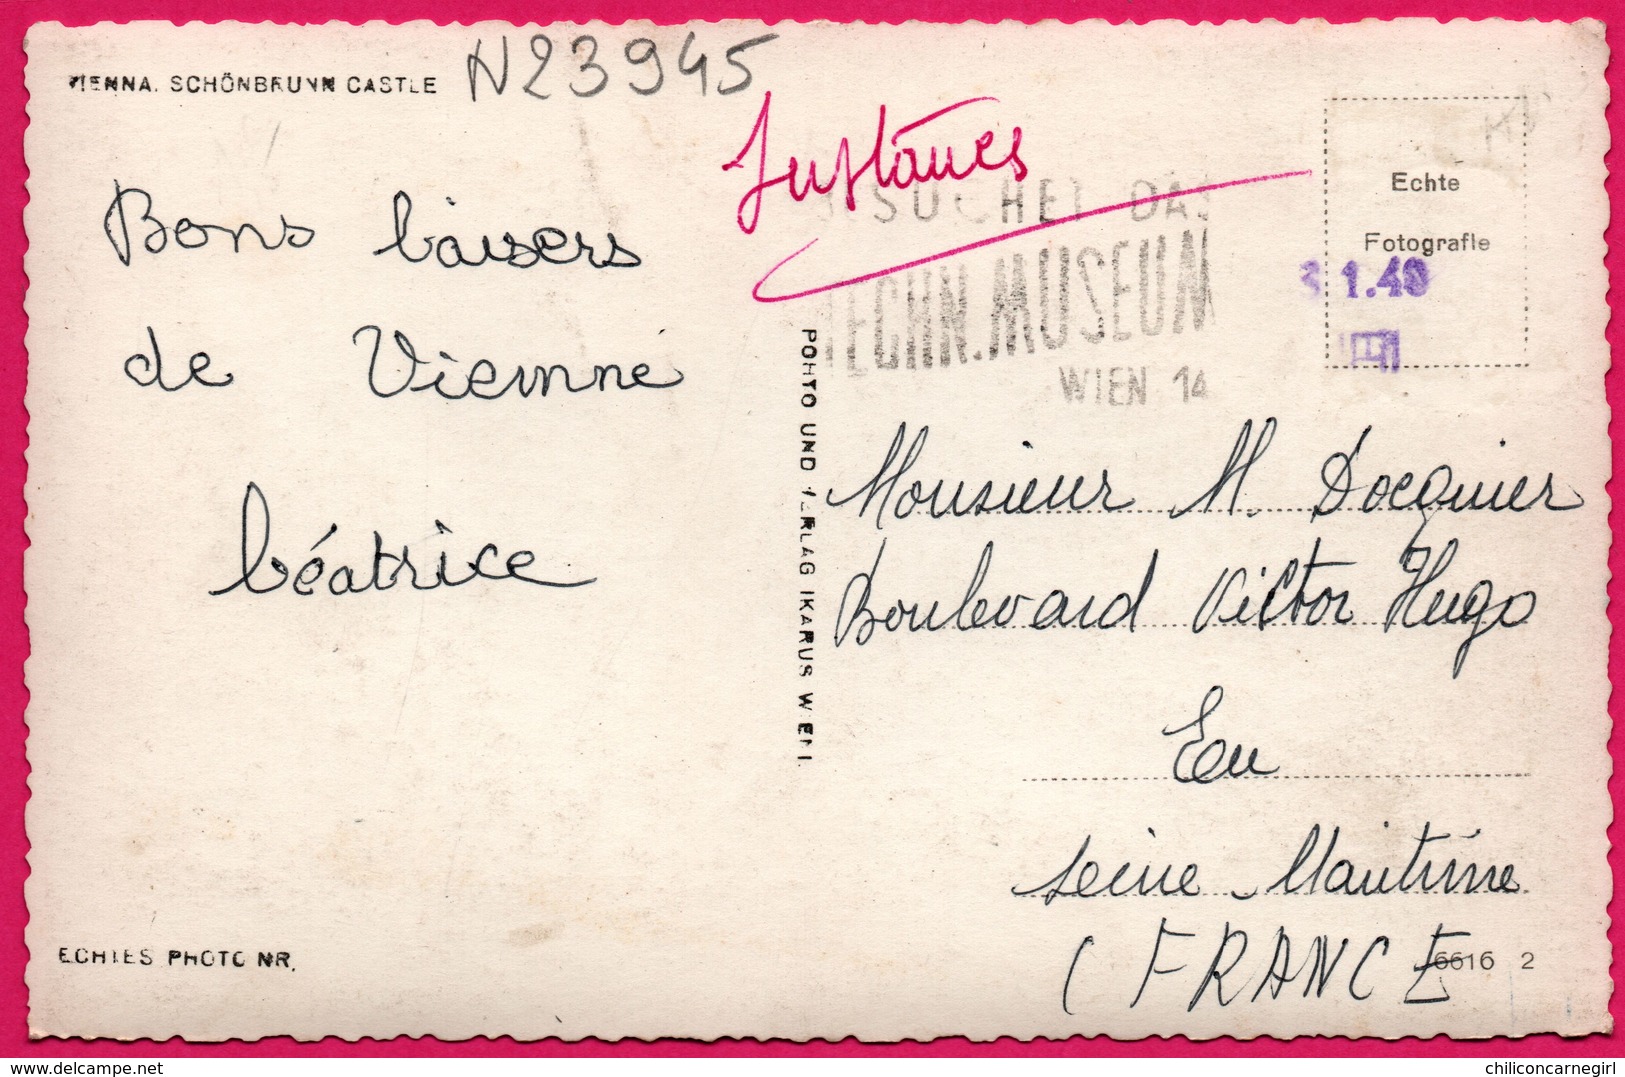 VIENNA. SCHÖNBRUNN CASTLE
N23945
Bons baisers
de Vienne
béatrice
ECHTES PHOTO NR.
POHTO UND VERLAG IKARUS WIEN I.
SUCHET DAS
TECHN. MUSEUM
WIEN 14
Echte
Fotografie
S 1.40
Monsieur M. Docquier
Boulevard Victor Hugo
Eu
Seine Maritime
(FRANCE
6616 2
chiliconcarnegirl